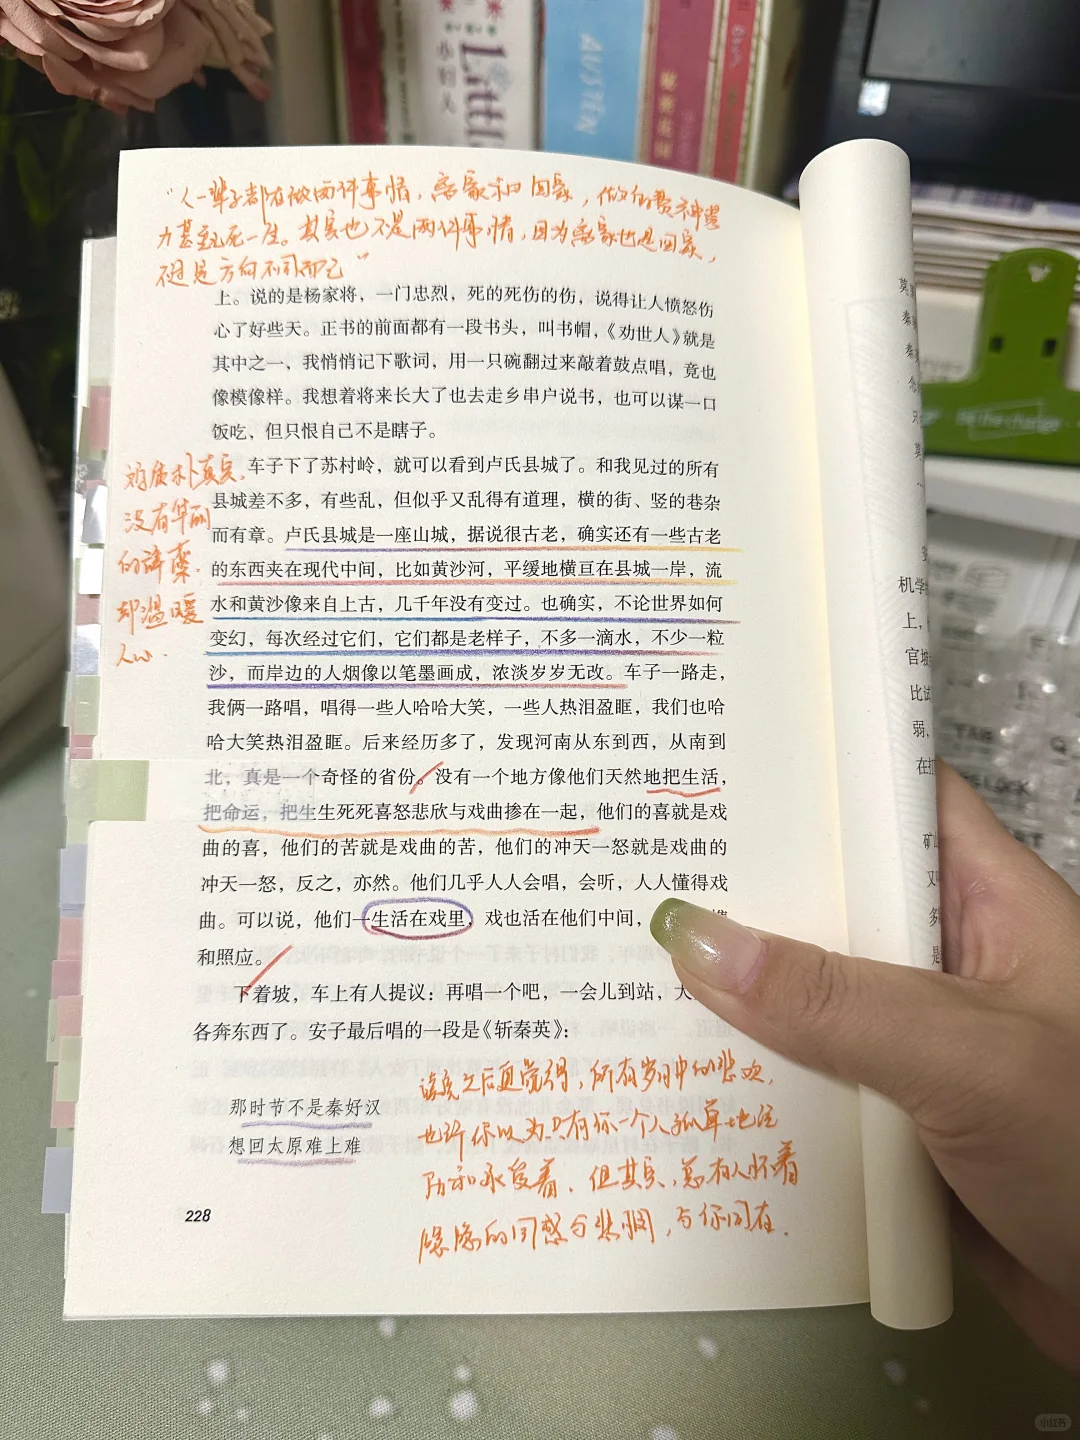 小妇人
Little
AUSTEN
"人一辈子都在做两件事情，离家和回家，做得费神费
力甚至死一生。其实也不是两件事情，因为离家也是回家，
只是方向不同而已"
上。说的是杨家将，一门忠烈，死的死伤的伤，说得让人愤怒伤
心了好些天。正书的前面都有一段书头，叫书帽，《劝世人》就是
其中之一，我悄悄记下歌词，用一只碗翻过来敲着鼓点唱，竟也
像模像样。我想着将来长大了也去走乡串户说书，也可以谋一口
饭吃，但只恨自己不是瞎子。
车子下了苏村岭，就可以看到卢氏县城了。和我见过的所有
县城差不多，有些乱，但似乎又乱得有道理，横的街、竖的巷杂
而有章。卢氏县城是一座山城，据说很古老，确实还有一些古老
的东西夹在现代中间，比如黄沙河，平缓地横亘在县城一岸，流
水和黄沙像来自上古，几千年没有变过。也确实，不论世界如何
变幻，每次经过它们，它们都是老样子，不多一滴水，不少一粒
沙，而岸边的人烟像以笔墨画成，浓淡岁岁无改。车子一路走，
我俩一路唱，唱得一些人哈哈大笑，一些人热泪盈眶，我们也哈
哈大笑热泪盈眶。后来经历多了，发现河南从东到西，从南到
北，真是一个奇怪的省份。没有一个地方像他们天然地把生活，
把命运，把生生死死喜怒悲欣与戏曲掺在一起，他们的喜就是戏
曲的喜，他们的苦就是戏曲的苦，他们的冲天一怒就是戏曲的
冲天一怒，反之，亦然。他们几乎人人会唱，会听，人人懂得戏
曲。可以说，他们一生活在戏里，戏也活在他们中间，
和照应。
下着坡，车上有人提议：再唱一个吧，一会儿到站，大
各奔东西了。安子最后唱的一段是《斩秦英》：
那时节不是秦好汉
想回太原难上难
228
好质朴真实，
没有华丽
的辞藻，
却温暖
人心.
读完之后更觉得，所有岁月中的悲欢，
也许你以为只有你一个人孤单地经
历和承受着，但其实，总有人怀着
隐隐的同感与悲悯，与你同在.
Be the change
机学
上，
官坡
比试
弱，
在打
矿
TAB
小红书